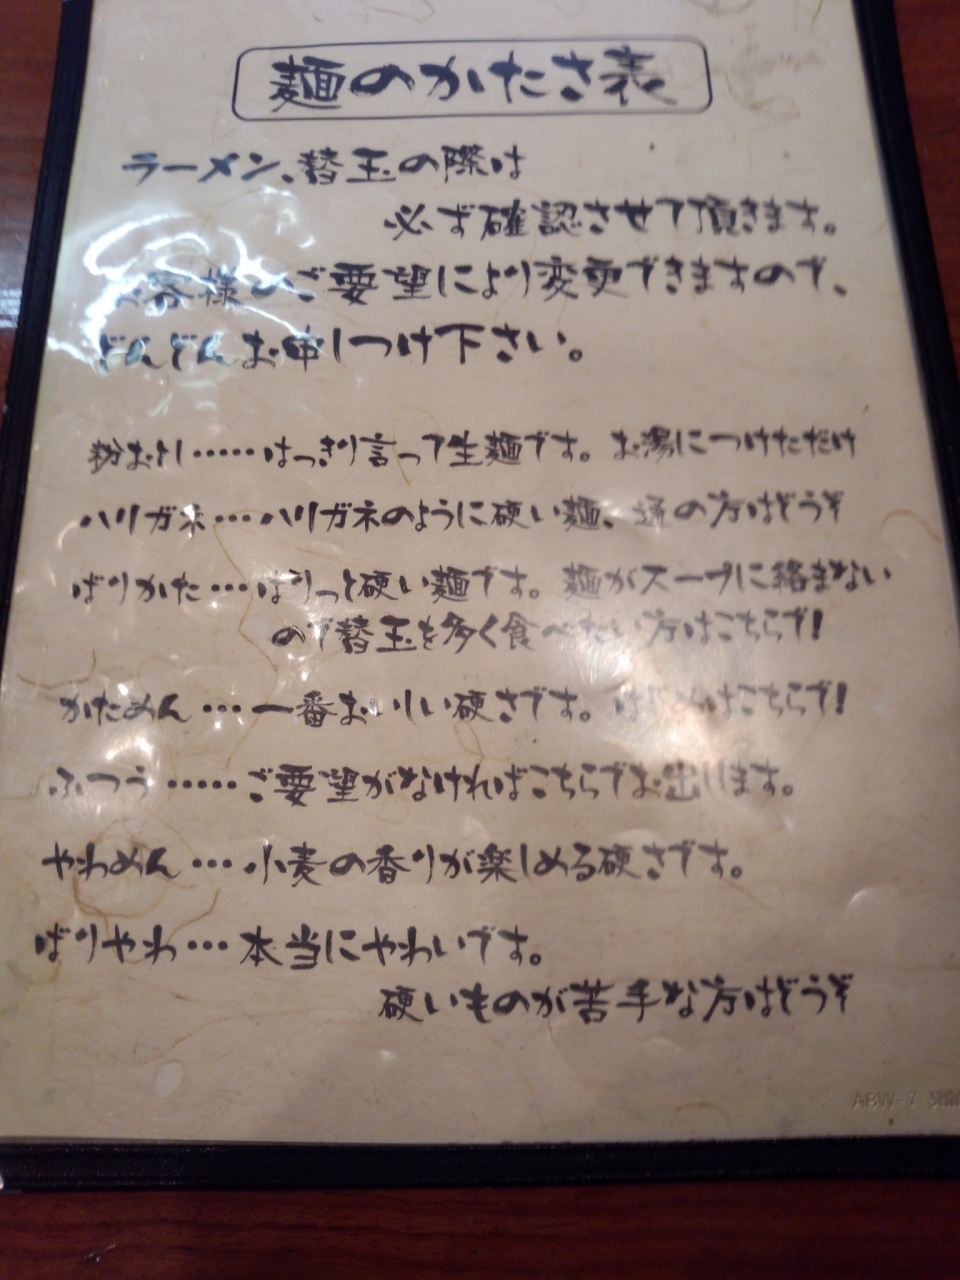 麺のかたさ表
ラーメン、替玉の際は
必ず確認させて頂きます。
お客様のご要望により変更できますので、
どんどんお申しつけ下さい。
粉おとし……はっきり言って生麺です。お湯につけただけ
ハリガネ…ハリガネのように硬い麺、通の方はどうぞ
ばりかた…ばりっと硬い麺です。麺がスープに絡まない
ので替玉を多く食べたい方はこちらで!
かためん…一番おいしい硬さです。はこちらで!
ふつう……ご要望がなければこちらでお出しします。
やわめん…小麦の香りが楽しめる硬さです。
ばりやわ…本当にやわいです。
硬いものが苦手な方はどうぞ
ABW-7